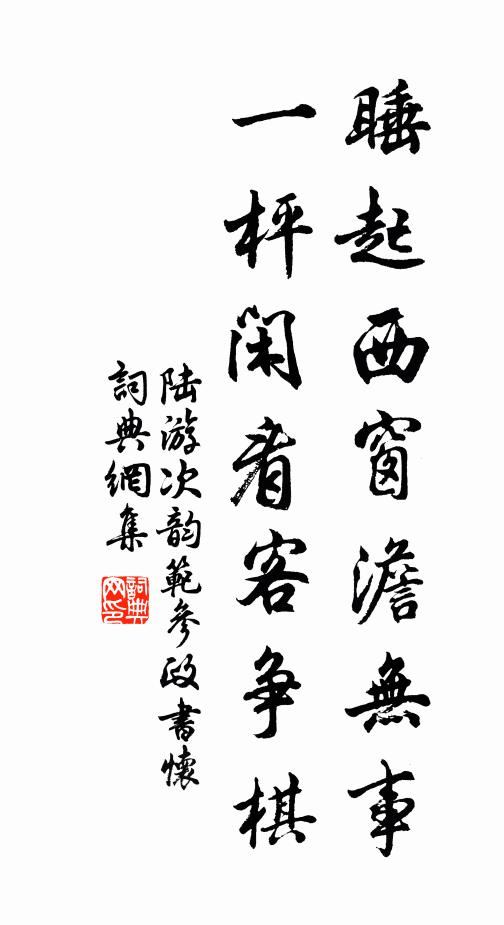 睡起西窗澹無事
一枰閑看客爭棋
陸游次韵範參政書懷
詞典網集
詞典
网印